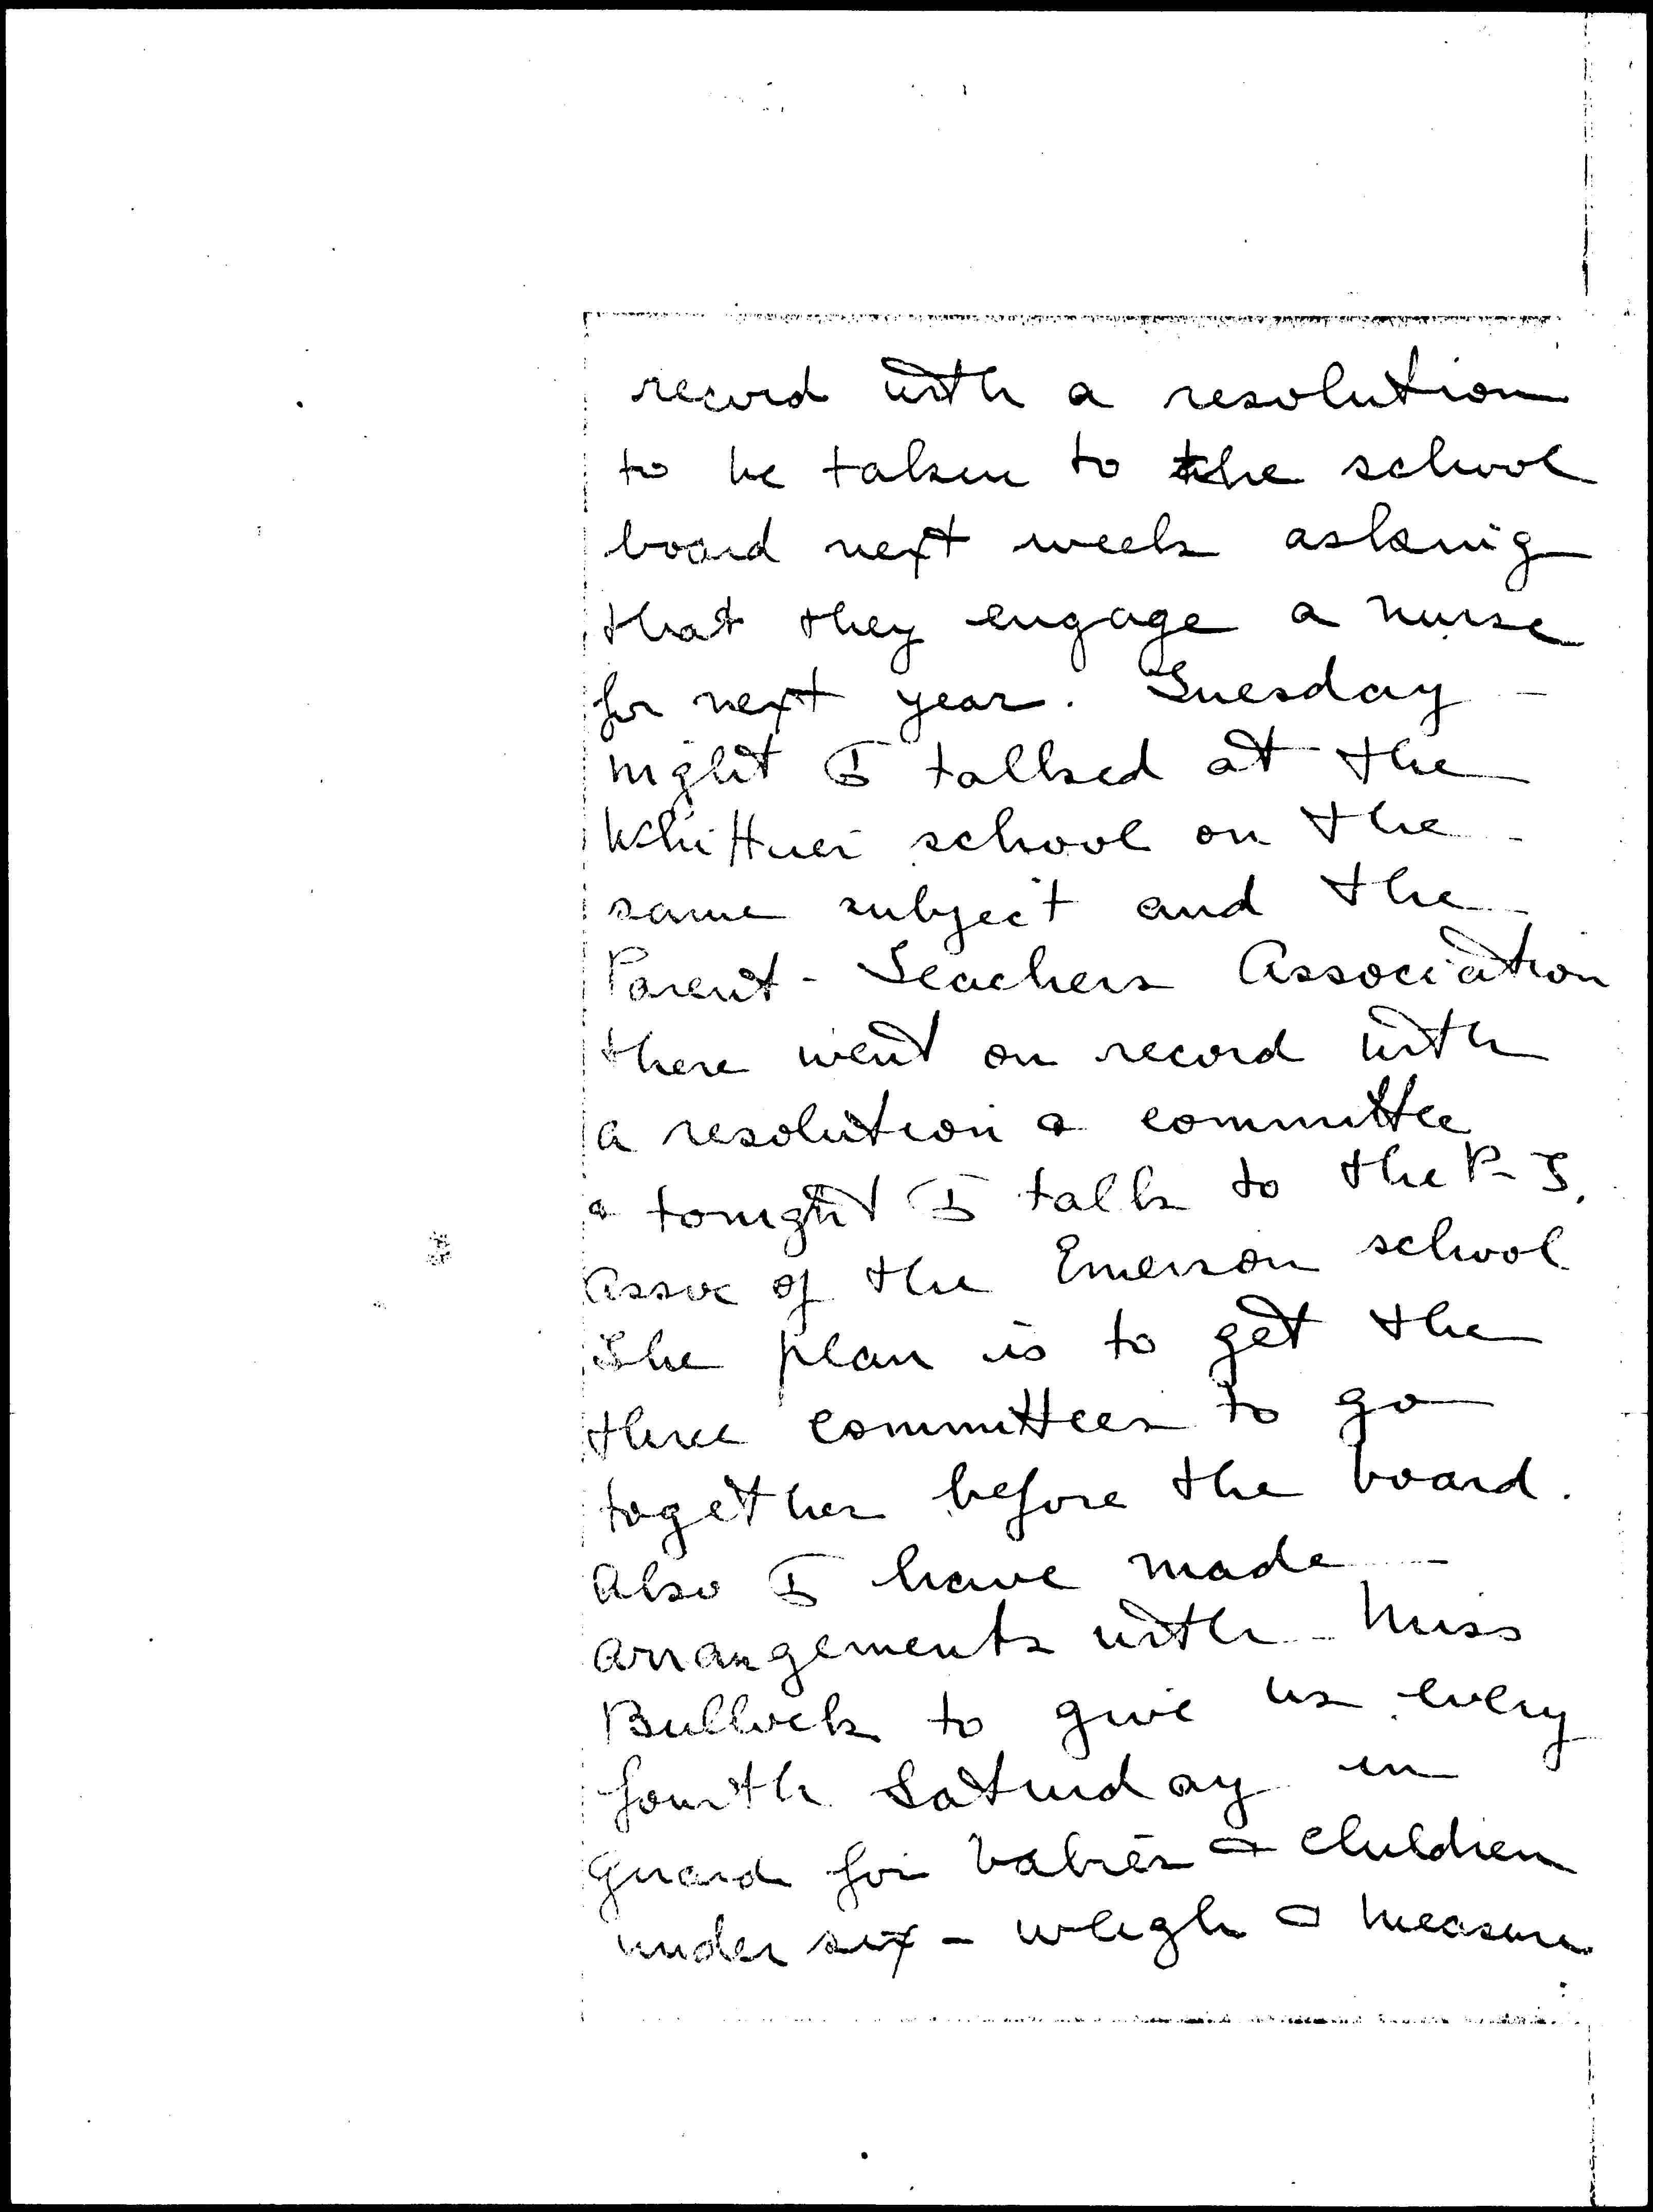 record with a resolution
to be taken to the school
board next week asking
that they engage a nurse
for next year. Tuesday -
night I talked at the
Whittier school on the
same subject and the
Parent - Teachers Association
there went on record with
a resolution & committee
& tonight I talk to the P-T.
Assoc of the Emerson school
The plan is to get the
three committees to go
together before the board.
Also I have made -
arrangements with - Miss
Bullock to give us every
fourth Saturday in
Guard for babies & children
under six - weigh & measure